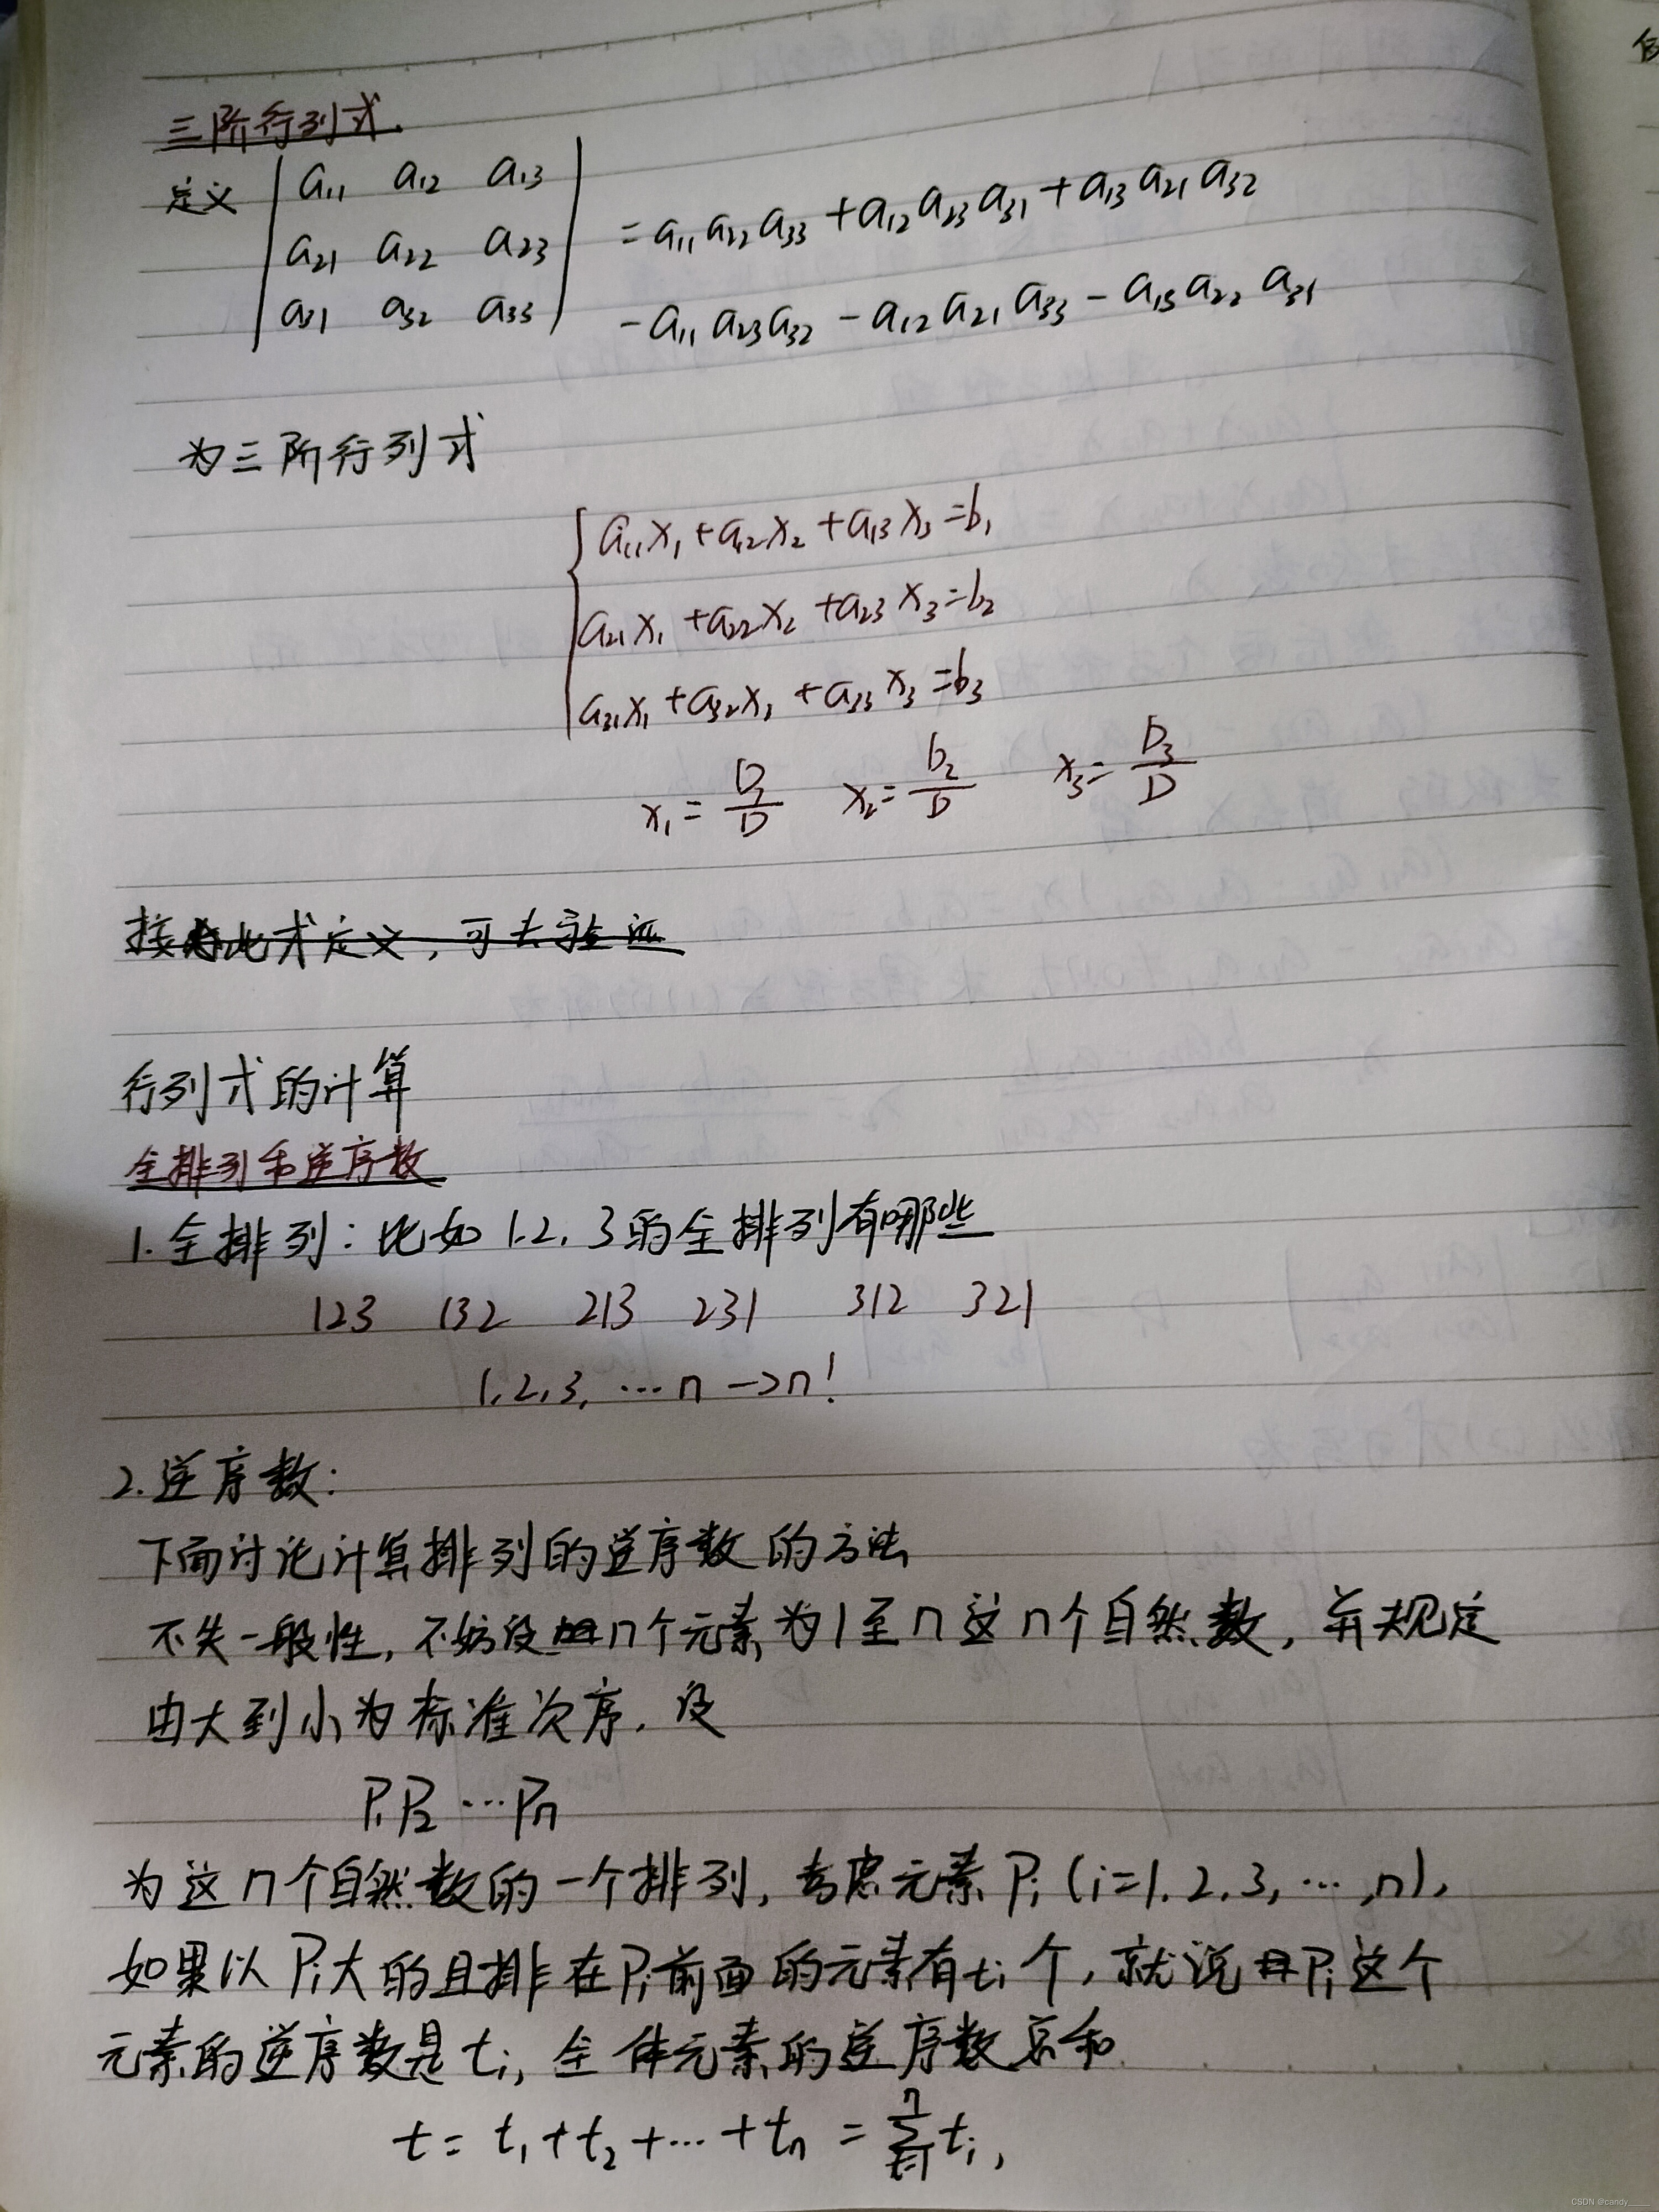 三阶行列式.
定义 | a11 a12 a13 |
| a21 a22 a23 | = a11a22a33 + a12a23a31 + a13a21a32
| a31 a32 a33 | - a11a23a32 - a12a21a33 - a13a22a31
为三阶行列式
{ a11x1 + a12x2 + a13x3 = b1
a21x1 + a22x2 + a23x3 = b2
a31x1 + a32x2 + a33x3 = b3
x1 = D1/D x2 = D2/D x3 = D3/D
行列式的计算
全排列和逆序数
1.全排列:比如1.2.3的全排列有哪些
123 132 213 231 312 321
1,2,3,…n->n!
2.逆序数:
下面讨论计算排列的逆序数的方法
不失一般性,不妨设n个元素为1至n这n个自然数,并规定
由大到小为标准次序.设
P1P2…Pn
为这n个自然数的一个排列,考虑元素Pi(i=1.2.3,…,n),
如果以Pi大的且排在Pi前面的元素有ti个,就说Pi这个
元素的逆序数是ti,全体元素的逆序数总和
t = t1 + t2 + … + tn = ∑ti,
CSDN @candy____